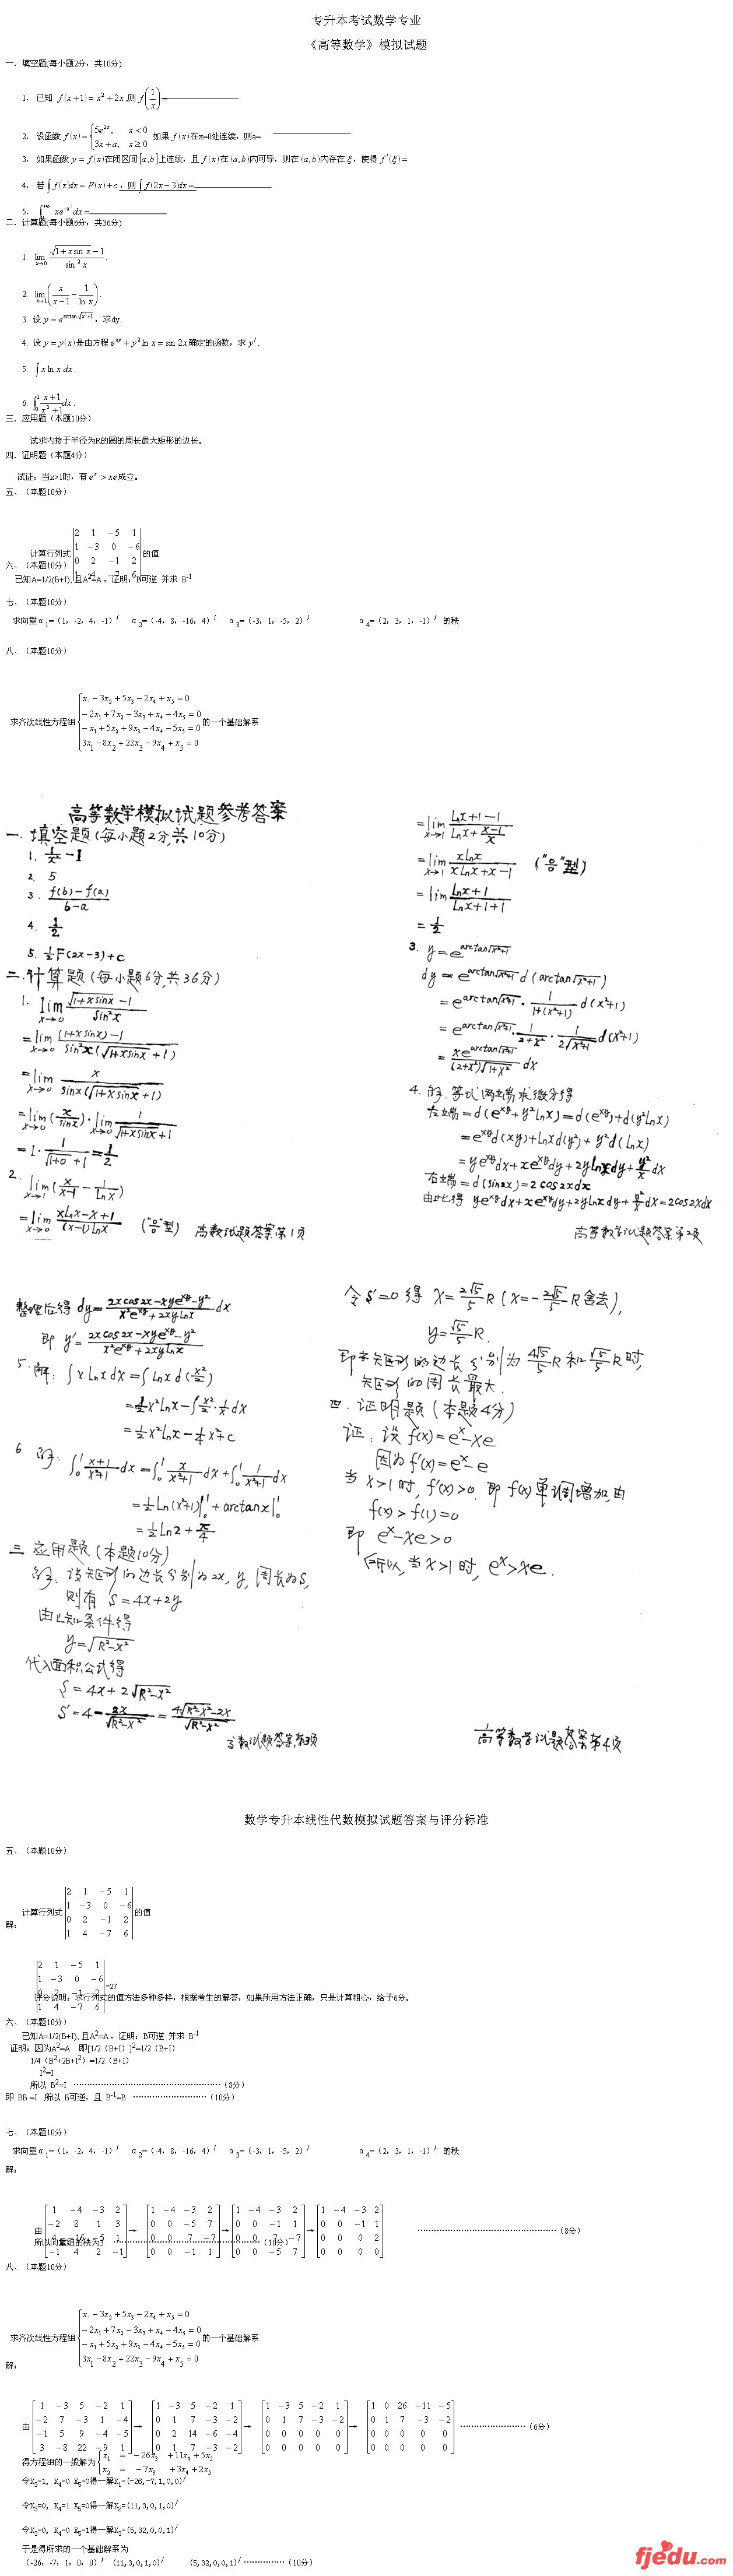 专升本考试数学专业
《高等数学》模拟试题
一．填空题(每小题2分，共10分)
1， 已知 f(x+1)=x²+2x ,则 f(1/x)=
2， 设函数 f(x)={5e^{2x}, x<0; 3x+a, x≥0 如果 f(x)在x=0处连续，则a=
3， 如果函数 y=f(x)在闭区间[a,b]上连续，且 f(x)在(a,b)内可导，则在(a,b)内存在ξ，使得 f'(ξ)=
4， 若∫f(x)dx=F(x)+c，则∫f(2x-3)dx=
二．计算题(每小题6分，共36分)
1. lim_{x→0} (√(1+x sin x) -1)/(sin² x).
2. lim_{x→1}(x/(x-1) - 1/ln x).
3. 设 y=e^{arctan√(x²+1)}，求dy.
4. 设 y=y(x)是由方程 e^{xy}+y² ln x=sin 2x确定的函数，求 y'.
5. ∫x ln x dx.
6. ∫_0^1 (x+1)/(x²+1) dx.
三．应用题（本题10分）
试求内接于半径为R的圆的周长最大矩形的边长。
四．证明题（本题4分）
试证：当x>1时，有 e^x>xe成立。
五、（本题10分）
计算行列式 |2 1 -5 1; 1 -3 0 -6; 0 2 -1 2; 1 4 -7 6| 的值
六、（本题10分）
已知A=1/2(B+I),且A²=A，证明：B可逆 并求 B⁻¹
七、（本题10分）
求向量α1=（1，-2，4，-1）/ α2=（-4，8，-16，4）/ α3=（-3，1，-5，2）/ α4=（2，3，1，-1）/ 的秩
八、（本题10分）
求齐次线性方程组 {x₁-3x₂+5x₃-2x₄+x₅=0; -2x₁+7x₂-3x₃+x₄-4x₅=0; -x₁+5x₂+9x₃-4x₄-5x₅=0; 3x₁-8x₂+22x₃-9x₄+x₅=0 的一个基础解系
高等数学模拟试题参考答案
一．填空题（每小题2分,共10分）
1. 1/x² -1
2. 5
3. (f(b)-f(a))/(b-a)
4. 1/2
5. ½F(2x-3)+c
二．计算题（每小题6分,共36分）
1. lim_{x→0} (√(1+x sinx) -1)/(sin²x)
=lim_{x→0} ((1+x sinx)-1)/(sin²x(√(1+x sinx)+1))
=lim_{x→0} x/(sinx(√(1+x sinx)+1))
=lim_{x→0}(x/sinx)·lim_{x→0} 1/(√(1+x sinx)+1)
=1·1/(√(1+0)+1)=1/2
2. lim_{x→1}(x/(x-1) - 1/Lnx)
=lim_{x→0} (xLnx-x+1)/((x-1)Lnx) （"0/0"型）
高数试题答案第1项
=lim_{x→1} (Lnx+1-1)/(Lnx+(x-1)/x)
=lim_{x→1} xLnx/(xLnx+x-1) （"0/0"型）
=lim (Lnx+1)/(Lnx+1+1)
=1/2
3. y=e^{arctan√(x²+1)}
dy=e^{arctan√(x²+1)} d(arctan√(x²+1))
=e^{arctan√(x²+1)}·1/(1+(x²+1)) d(√(x²+1))
=e^{arctan√(x²+1)}·1/(2+x²)·1/(2√(x²+1)) d(x²+1)
=xe^{arctan√(x²+1)}/((2+x²)√(1+x²)) dx
4. 解：等式两端求微分得
左端=d(e^{xy}+y²Lnx)=d(e^{xy})+d(y²Lnx)
=e^{xy}d(xy)+Lnxd(y²)+y²d(Lnx)
=ye^{xy}dx+xe^{xy}dy+2yLnxdy+y²/x dx
右端=d(sin2x)=2cos2xdx
由此得 ye^{xy}dx+xe^{xy}dy+2yLnxdy+y²/x dx=2cos2xdx
高等数学试题答案第2项
整理后得 dy=(2xcos2x-xye^{xy}-y²)/(x²e^{xy}+2xyLnx) dx
即 y'=(2xcos2x-xye^{xy}-y²)/(x²e^{xy}+2xyLnx)
5. 解：∫xLnxdx=∫Lnxd(x²/2)
=½x²Lnx-∫x²/2·1/x dx
=½x²Lnx-¼x²+c
6 解：∫_0^1 (x+1)/(x²+1) dx=∫_0^1 x/(x²+1) dx+∫_0^1 1/(x²+1) dx
=½Ln(x²+1)|_0^1+arctanx|_0^1
=½Ln2+π/4
三 应用题（本题10分）
解：设矩形的边长分别为2x, y, 周长为S,
则有 S=4x+2y
由已知条件得
y=√(R²-x²)
代入面积公式得
S=4x+2√(R²-x²)
S'=4-2x/√(R²-x²)=(4√(R²-x²)-2x)/√(R²-x²)
令S'=0 得 x=2√5/5 R (x=-2√5/5 R舍去),
y=√5/5 R.
即当矩形的边长分别为 4√5/5 R 和 √5/5 R时,
矩形的周长最大.
四．证明题（本题4分）
证：设 f(x)=e^x-xe
因为 f'(x)=e^x-e
当 x>1时, f'(x)>0. 即 f(x)单调增加,由
f(x)>f(1)=0
即 e^x-xe>0
所以,当x>1时, e^x>xe.
高等数学试题答案第4项
数学专升本线性代数模拟试题答案与评分标准
五、（本题10分）
计算行列式 |2 1 -5 1; 1 -3 0 -6; 0 2 -1 2; 1 4 -7 6| 的值
解：
|2 1 -5 1; 1 -3 0 -6; 0 2 -1 2; 1 4 -7 6| =27
评分说明：求行列式的值方法多种多样，根据考生的解答，如果所用方法正确，只是计算粗心，给予6分。
六、（本题10分）
已知A=1/2(B+I),且A²=A，证明：B可逆 并求 B⁻¹
证明：因为A²=A 即[1/2（B+I）]²=1/2（B+I）
1/4（B²+2B+I²）=1/2（B+I）
I²=I
所以 B²=I ……………………（8分）
即 BB =I 所以 B可逆，且 B⁻¹=B ……………………（10分）
七、（本题10分）
求向量α1=（1，-2，4，-1）/ α2=（-4，8，-16，4）/ α3=（-3，1，-5，2）/ α4=（2，3，1，-1）/ 的秩
解：
由 [1 -4 -3 2; -2 8 1 3; 4 -16 -5 1; -1 4 2 -1] → [1 -4 -3 2; 0 0 -5 7; 0 0 7 -7; 0 0 -1 1] → [1 -4 -3 2; 0 0 -1 1; 0 0 7 -7; 0 0 -5 7] → [1 -4 -3 2; 0 0 -1 1; 0 0 0 2; 0 0 0 0] ……………………（8分）
所以向量组的秩为3 ……………………（10分）
八、（本题10分）
求齐次线性方程组 {x₁-3x₂+5x₃-2x₄+x₅=0; -2x₁+7x₂-3x₃+x₄-4x₅=0; -x₁+5x₂+9x₃-4x₄-5x₅=0; 3x₁-8x₂+22x₃-9x₄+x₅=0 的一个基础解系
解：
由 [1 -3 5 -2 1; -2 7 -3 1 -4; -1 5 9 -4 -5; 3 -8 22 -9 1] → [1 -3 5 -2 1; 0 1 7 -3 -2; 0 2 14 -6 -4; 0 1 7 -3 -2] → [1 -3 5 -2 1; 0 1 7 -3 -2; 0 0 0 0 0; 0 0 0 0 0] → [1 0 26 -11 -5; 0 1 7 -3 -2; 0 0 0 0 0; 0 0 0 0 0] ……………………（6分）
得方程组的一般解为 {x₁ = -26x₃ +11x₄+5x₅; x₂ = -7x₃ +3x₄+2x₅
令X₃=1, X₄=0 X₅=0得一解X₁=(-26,-7,1,0,0)/
令X₃=0, X₄=1 X₅=0得一解X₂=(11,3,0,1,0)/
令X₃=0, X₄=0 X₅=1得一解X₃=(5,32,0,0,1)/
于是得所求的一个基础解系为
（-26，-7，1，0，0）/ (11,3,0,1,0)/ (5,32,0,0,1)/ ……………（10分）
fjedu.com